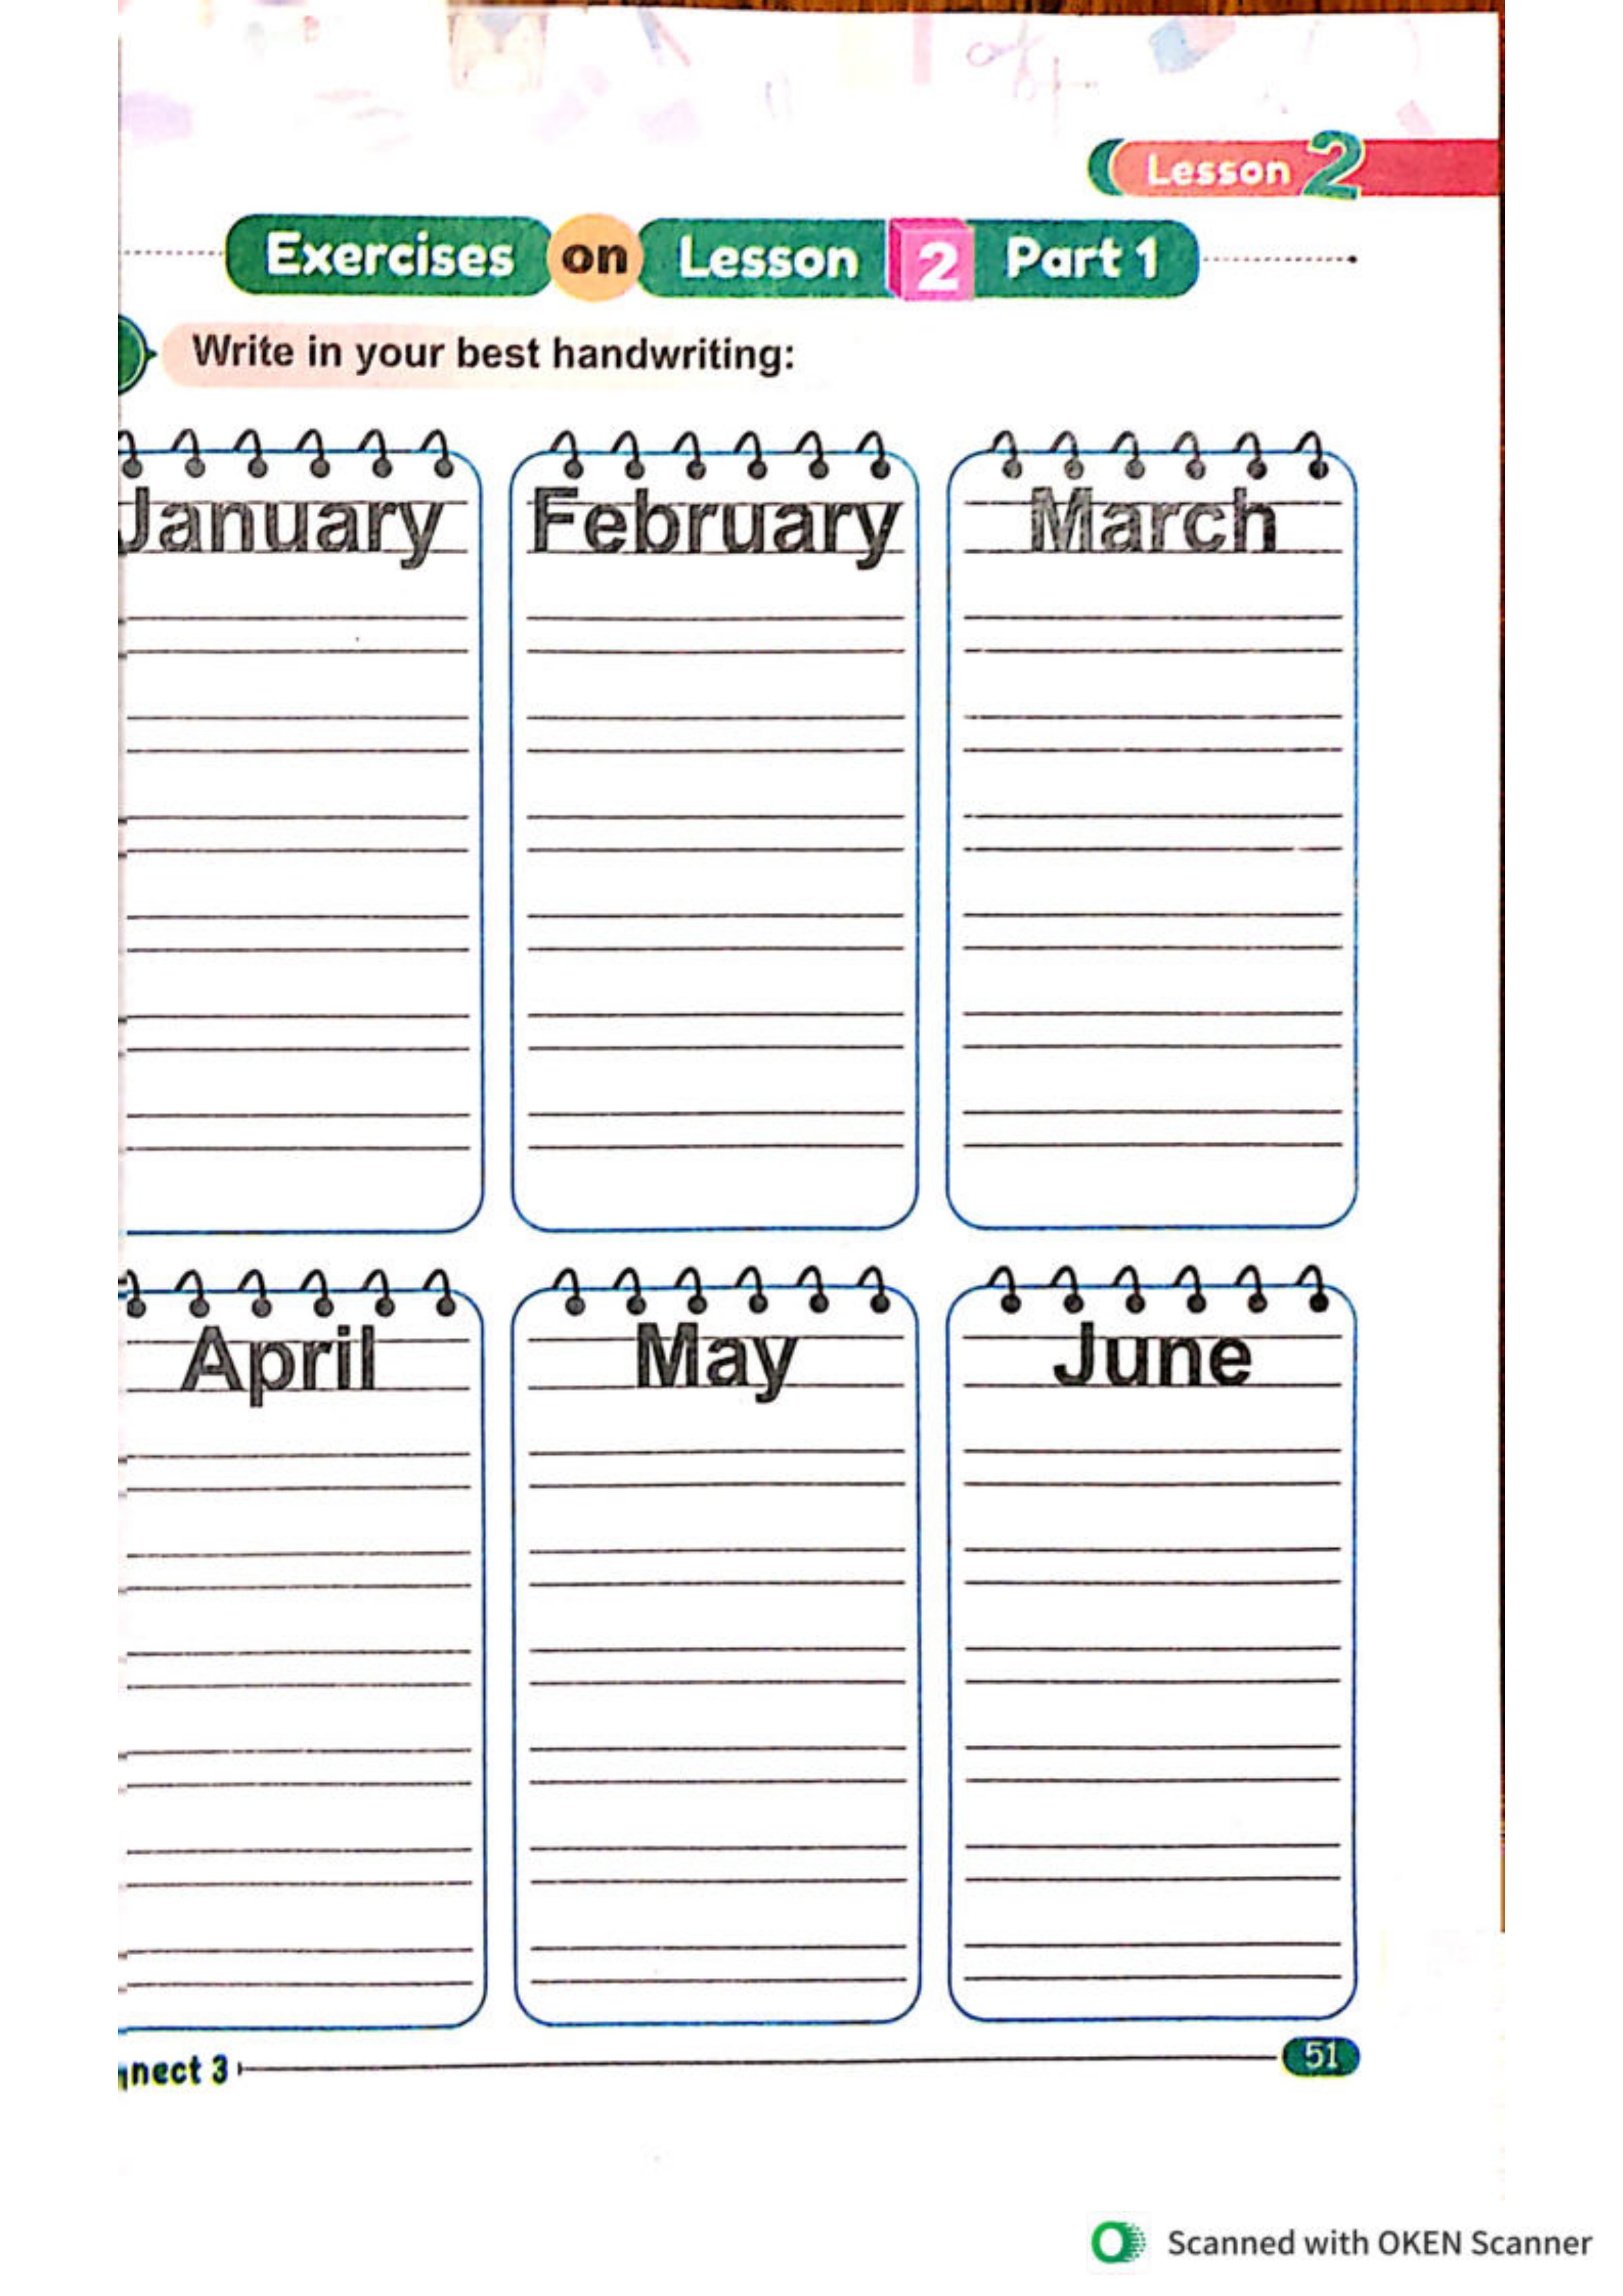 Lesson 2
Exercises on Lesson 2 Part 1
Write in your best handwriting:
January February March
April May June
nect 3 51
Scanned with OKEN Scanner